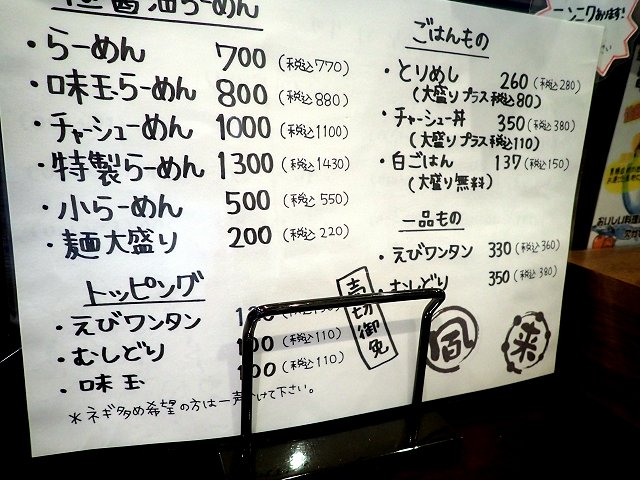 醤油らーめん
・らーめん 700 (税込770)
・味玉らーめん 800 (税込880)
・チャーシューめん 1000 (税込1100)
・特製らーめん 1300 (税込1430)
・小らーめん 500 (税込550)
・麺大盛り 200 (税込220)
トッピング
・えびワンタン
・むしどり 100 (税込110)
・味玉 100 (税込110)
*ネギ多め希望の方は一声かけて下さい。
ごはんもの
・とりめし 260 (税込280)
(大盛りプラス税込80)
・チャーシュー丼 350 (税込380)
(大盛りプラス税込110)
・白ごはん 137 (税込150)
(大盛り無料)
一品もの
・えびワンタン 330 (税込360)
・むしどり 350 (税込380)
売切御免
来
ニンニクあります!
おいしい料理